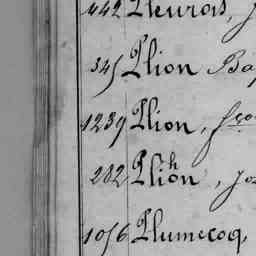 442 Pleurois, J
345 Plion Ba
1239 Plion, fço
282 Plihon, Jo
1056 Plumecoq,